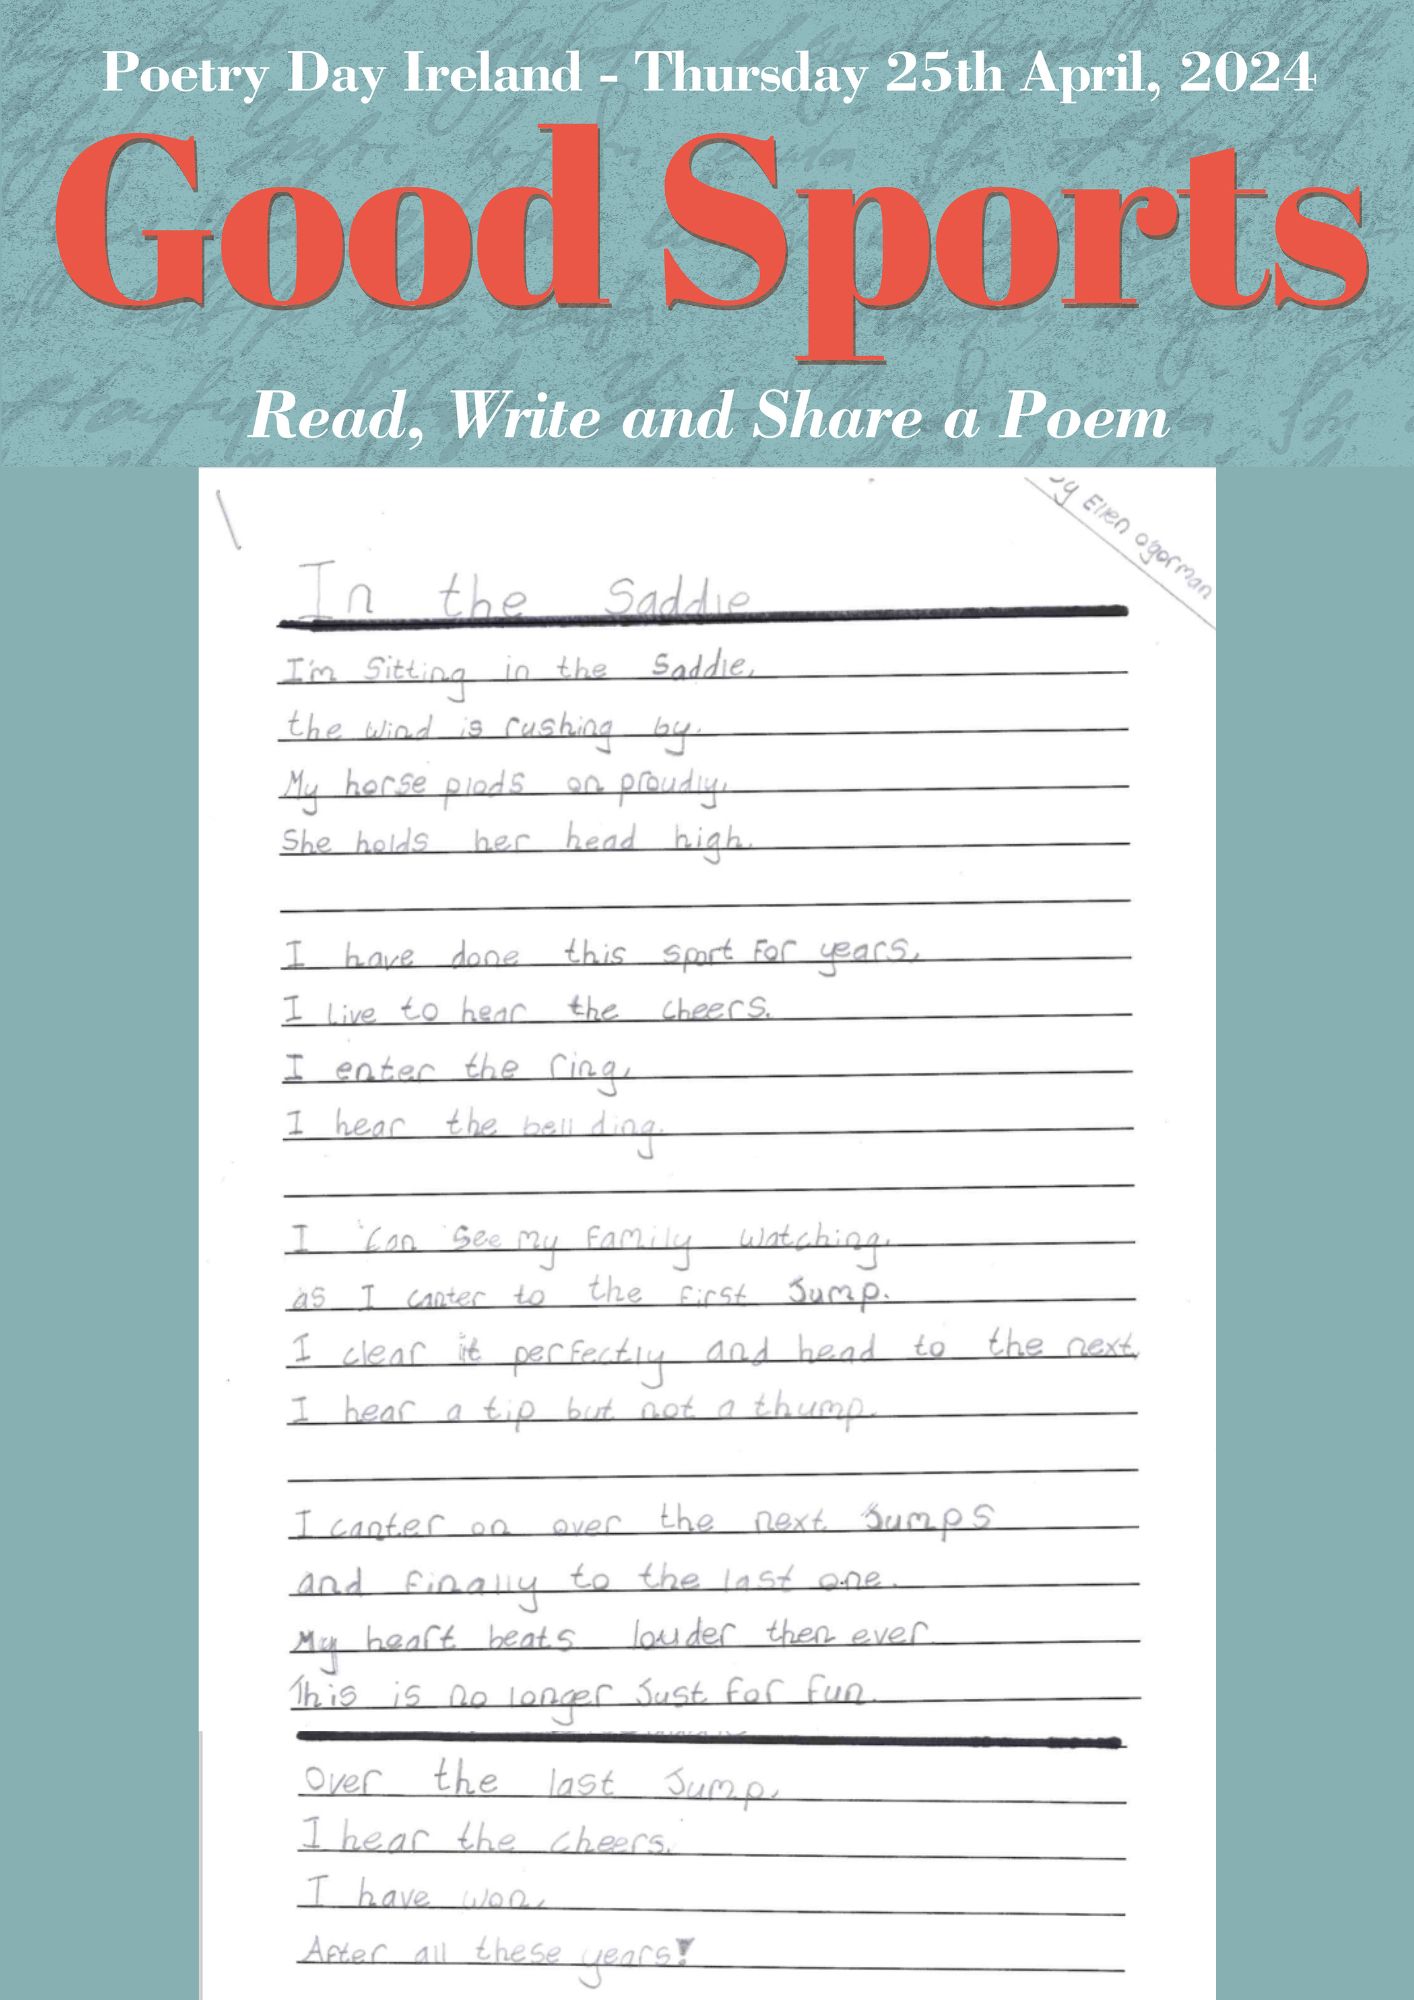 Poetry Day Ireland - Thursday 25th April, 2024
Good Sports
Read, Write and Share a Poem
by Ellen Ogorman
In the Saddle
I'm Sitting in the Saddle,
the wind is rushing by.
My horse plods on proudly,
She holds her head high.
I have done this sport For years,
I live to hear the cheers.
I enter the ring,
I hear the bell ding.
I Can See my Family watching,
as I canter to the First Jump.
I clear it perfectly and head to the next,
I hear a tip but not a thump.
I canter on over the next Jumps
and Finally to the last one.
My heart beats louder then ever
This is no longer Just For Fun.
Over the last Jump,
I hear the cheers.
I have won,
After all these years!